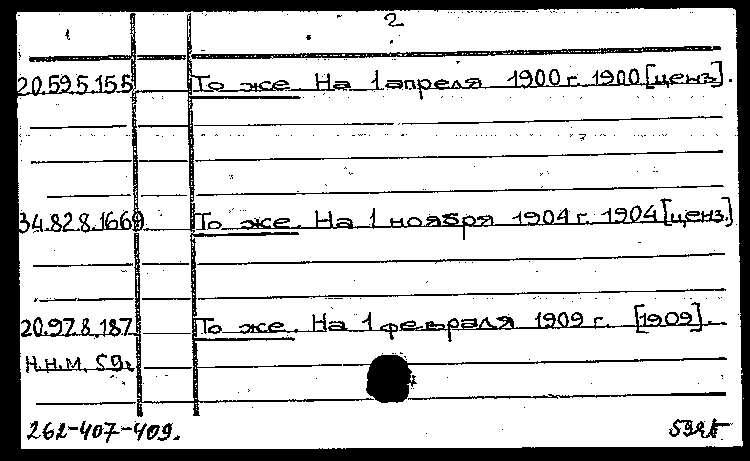 2
1
20.59.5.155 То же. На 1 апреля 1900 г. 1900 [ценз].
34.82.8.1669 То же. На 1 ноября 1904 г. 1904 [ценз.]
20.97.8.187 То же. На 1 февраля 1909 г. [1909].
Н.Н.М. 59г
262-407-409.